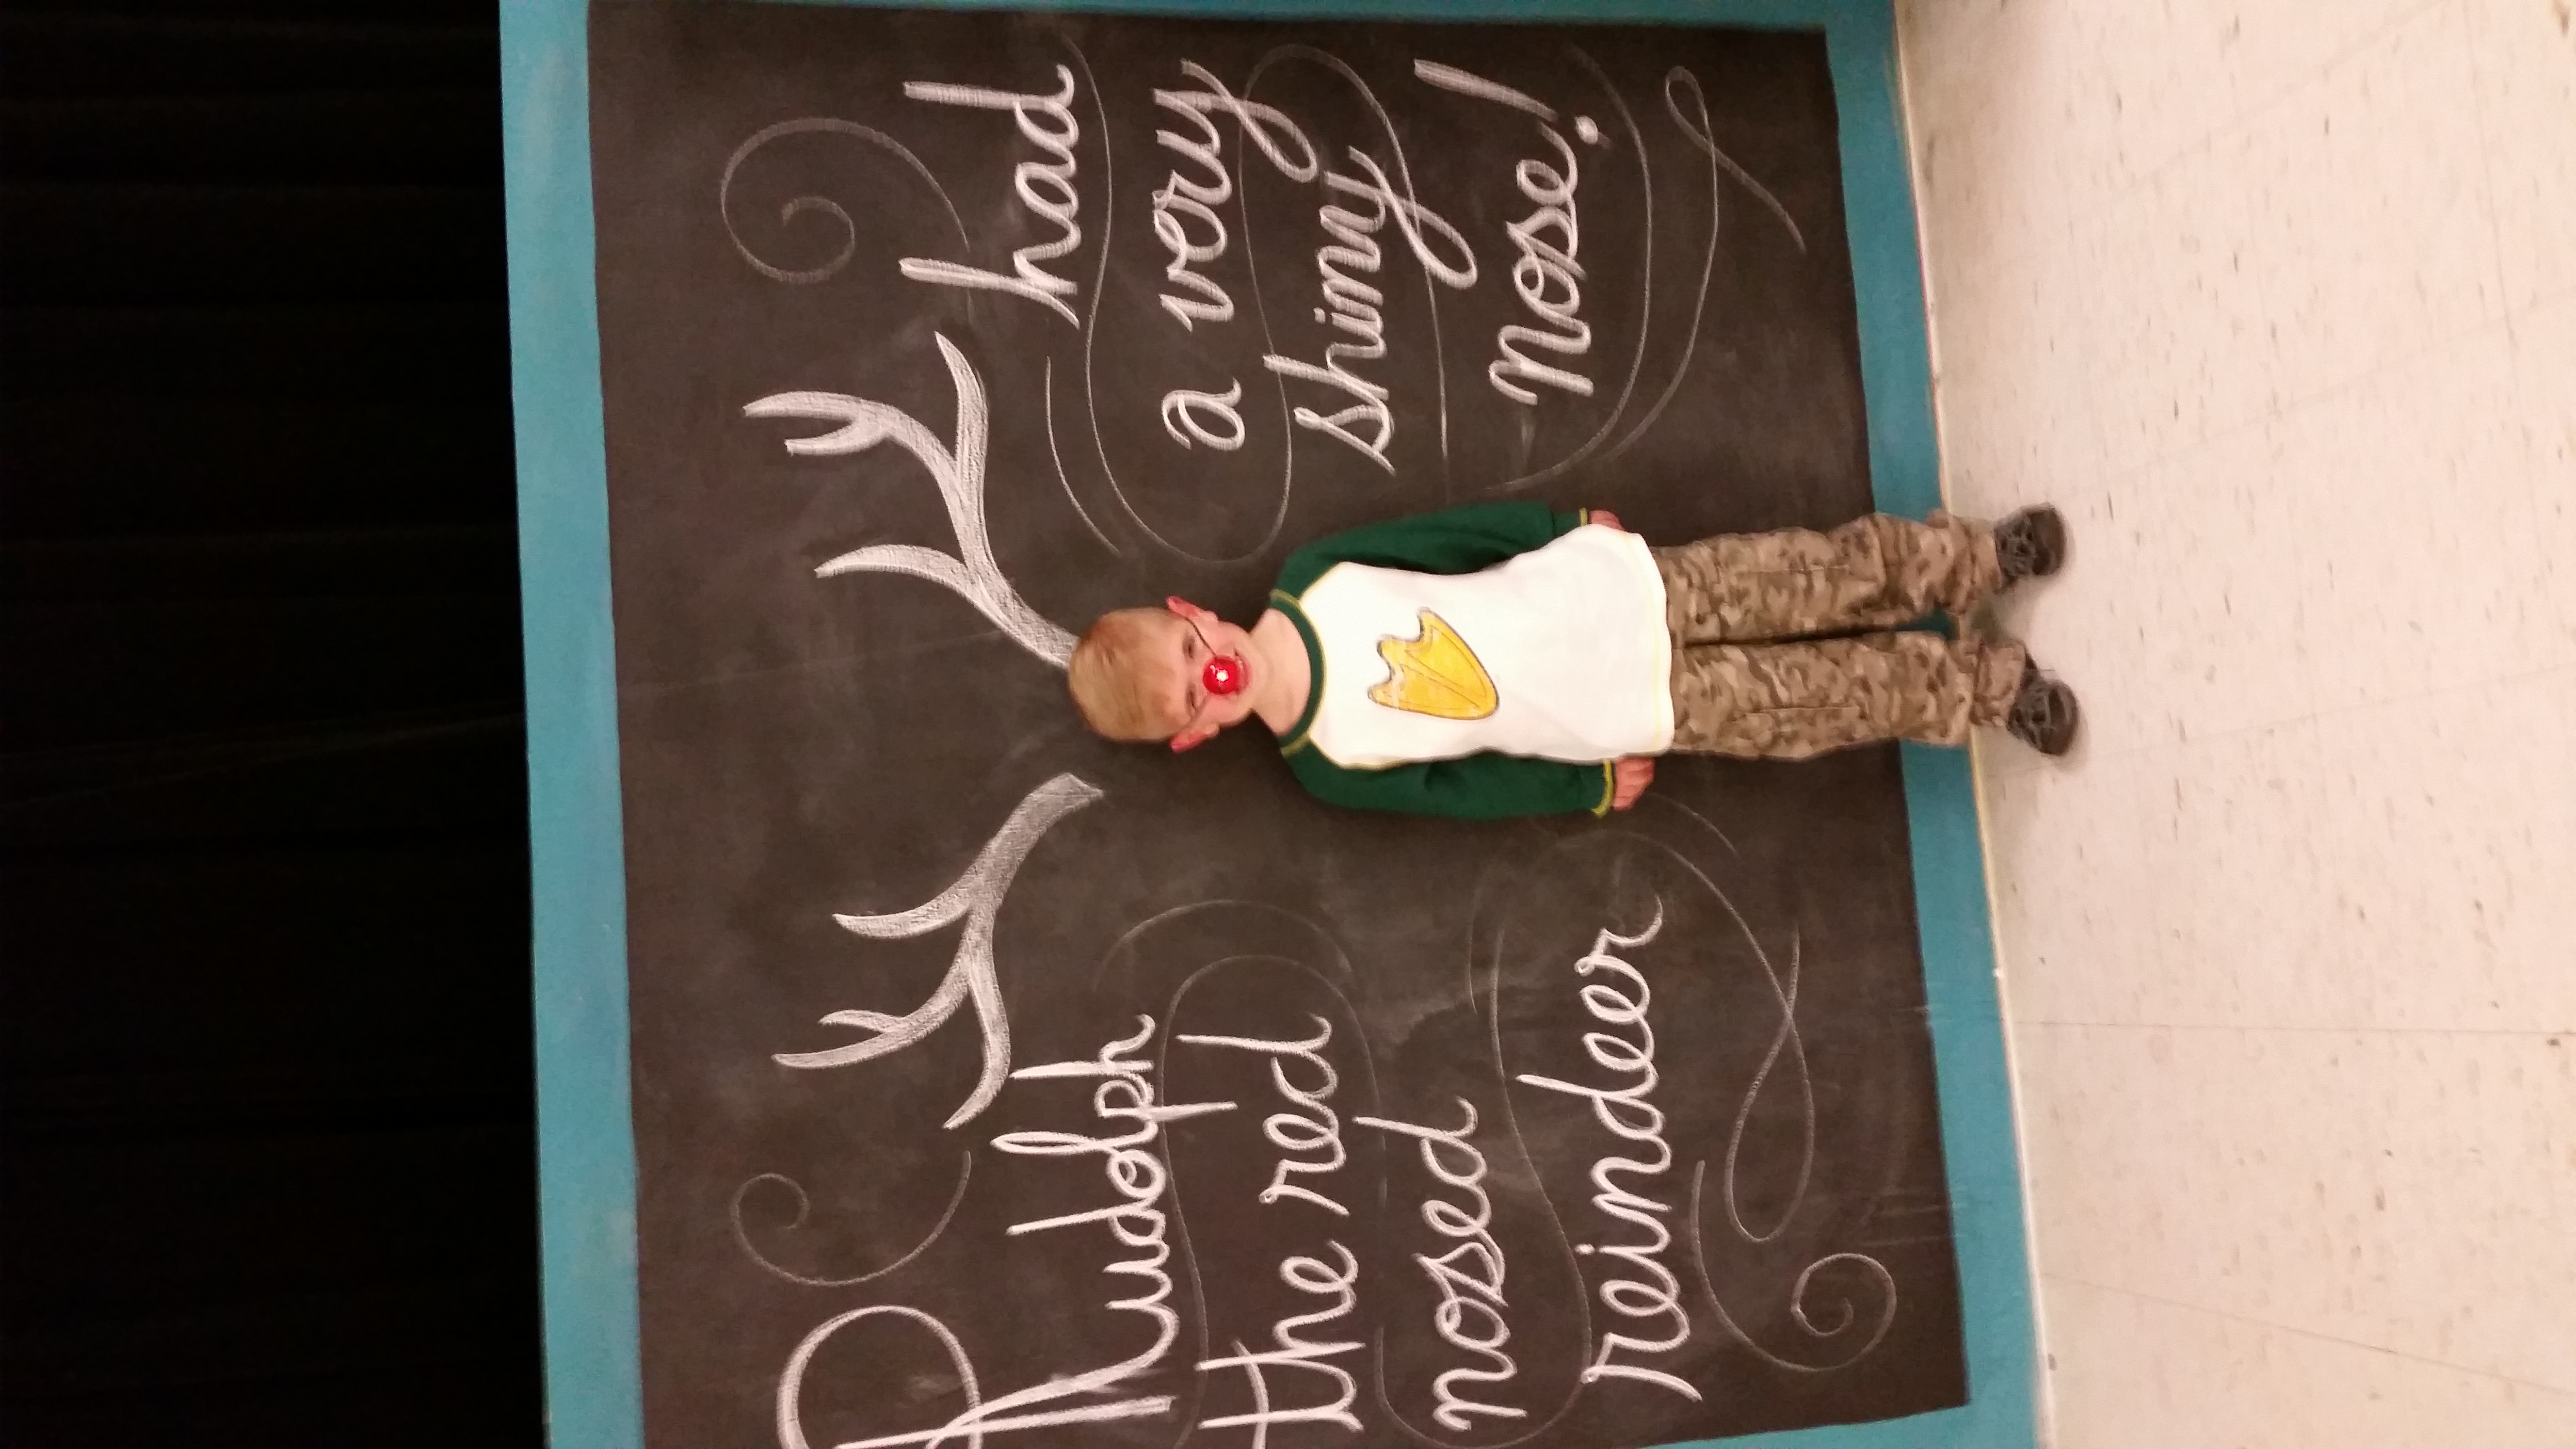 Rudolph
the red
nosed
reindeer
had
a very
shiny
nose!